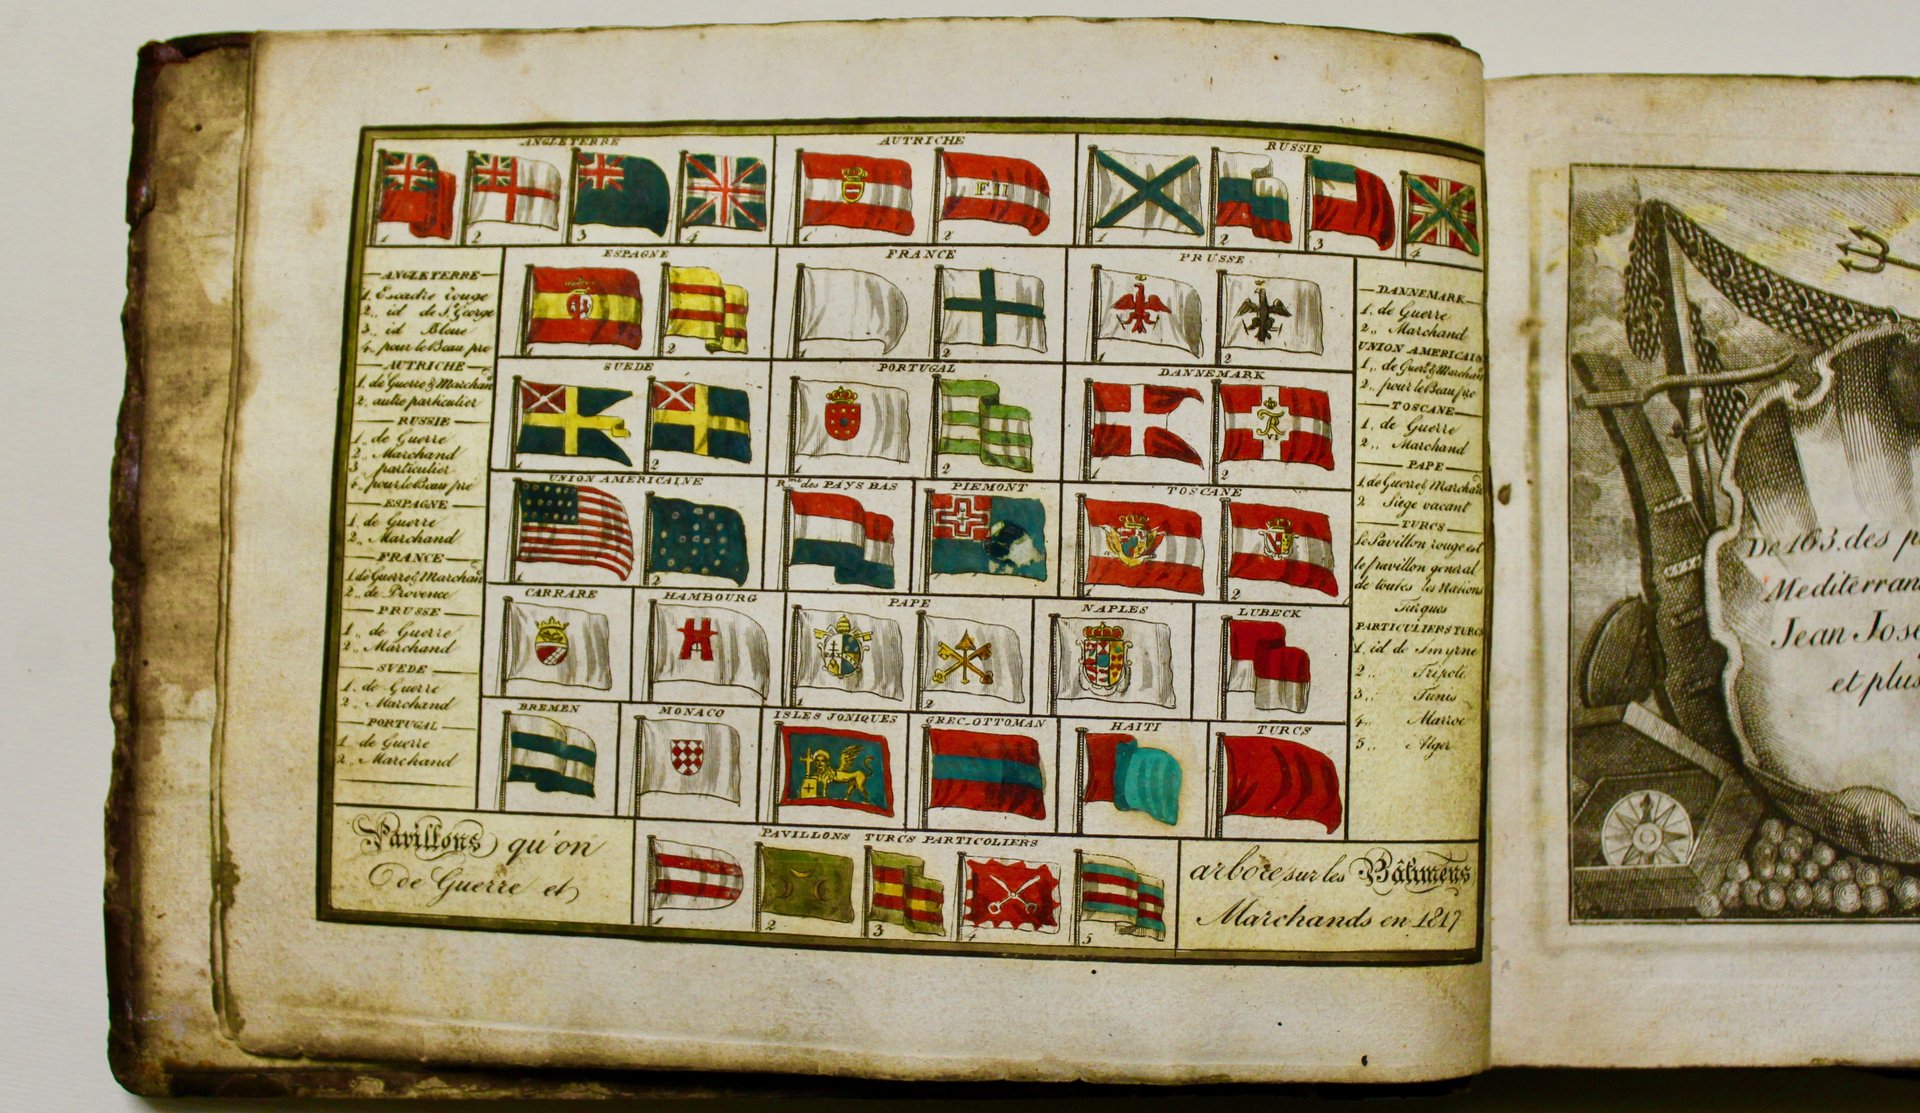 ANGLETERRE
AUTRICHE
RUSSIE
1 2 3 4
1 2
F. II
1 2 3 4
ESPAGNE
FRANCE
PRUSSE
1 2
1 2
1 2
SUEDE
PORTUGAL
DANNEMARK
1 2
1 2
1 2
UNION AMERICAINE
R.me des PAYS BAS
PIEMONT
TOSCANE
1 2
1 2
CARRARE
HAMBOURG
PAPE
NAPLES
LUBECK
1 2
BREMEN
MONACO
ISLES JONIQUES
GREC-OTTOMAN
HAITI
TURCS
PAVILLONS TURCS PARTICOLIERS
1 2 3 4 5
ANGLETERRE
1. Escadre rouge
2.. id de S. George
3.. id Bleue
4.. pour le Beau pré
AUTRICHE
1. de Guerre & Marchand
2.. autre particulier
RUSSIE
1.. de Guerre
2.. Marchand
3 particulier
4.. pour le Beau pré
ESPAGNE
1. de Guerre
2.. Marchand
FRANCE
1 de Guerre & Marchand
2.. de Provence
PRUSSE
1.. de Guerre
2.. Marchand
SUEDE
1. de Guerre
2.. Marchand
PORTUGAL
1 de Guerre
2.. Marchand
DANNEMARK
1. de Guerre
2.. Marchand
UNION AMERICAIN
1.. de Guer.e & Marchan
2.. pour le Beau pre
TOSCANE
1.. de Guerre
2.. Marchand
PAPE
1 de Guerre & Marchan
2 Siége vacant
TURCS
le Pavillon rouge est
le pavillon general
de toutes les Nations
Turques
PARTICULIERS TURCS
1. id de Smyrne
2.. Tripoli
3.. Tunis
4.. Marroc
5.. Alger
Pavillons qu'on arbore sur les Bâtimens
de Guerre et Marchands en 1817
De 163. des p
Mediterran
Jean Jose
et plus